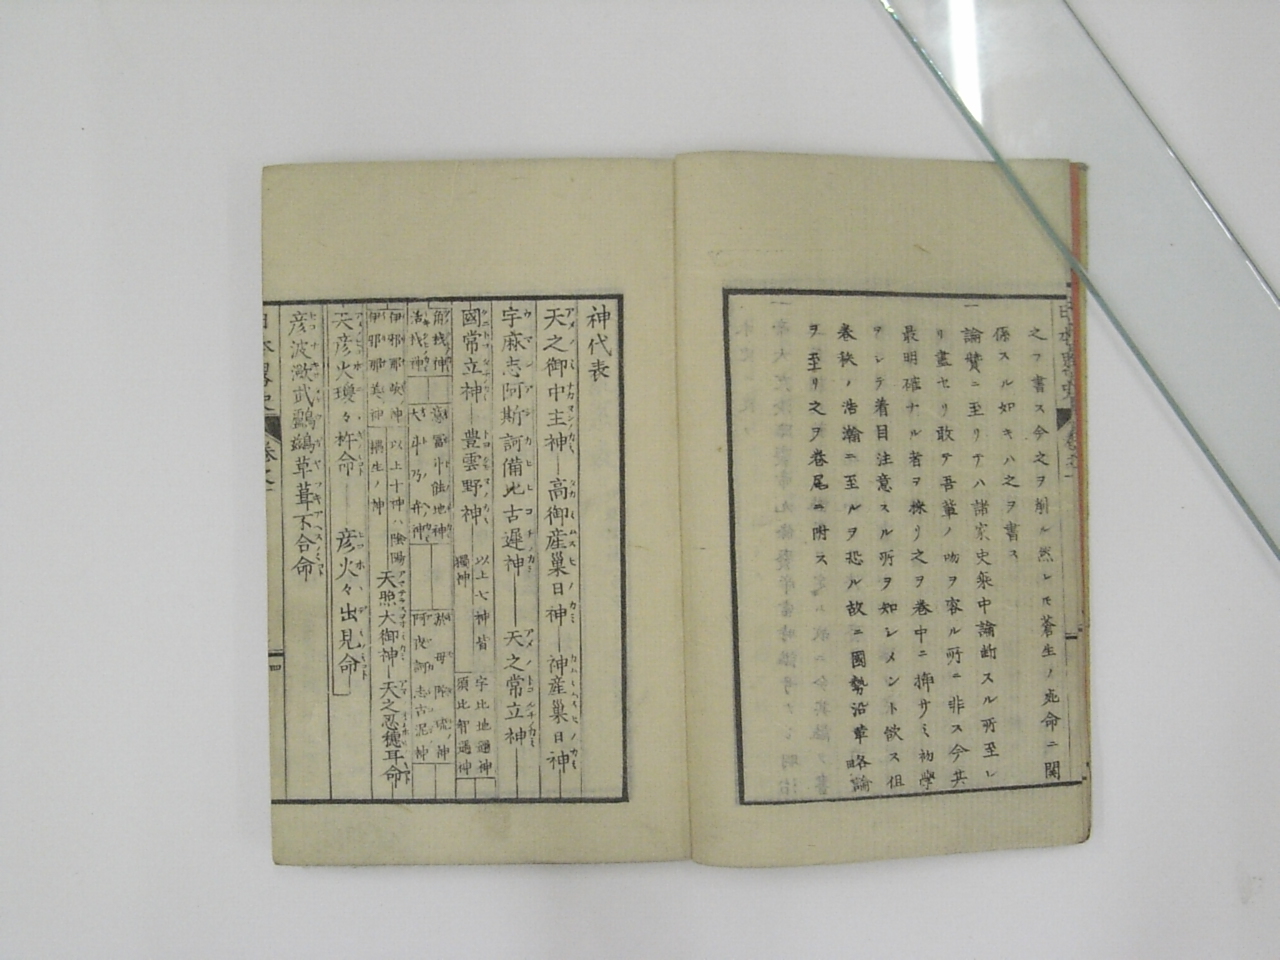 之ヲ書ス今之ヲ削ル然レモ蒼生ノ克命ニ関
係スル如キハ之ヲ書ス
一論賛ニ至リテハ諸家史乗中論断スル所至レ
リ盡セリ敢テ吾輩ノ吻ヲ容ル所ニ非ス今其
最明確ナル者ヲ採リ之ヲ巻中ニ挿サミ初学
ヲシテ着目注意スル所ヲ知シメント欲ス但
巻秩ノ浩瀚ニ至ルヲ恐ル故ニ國勢沿革略論
ヲ至リ之ヲ巻尾ニ附ス
神代表
天之御中主神―高御産巣日神―神産巣日神
宇麻志阿斯訶備比古遅神―天之常立神
國常立神―豊雲野神 以上七神皆獨神 宇比地邇神 須比智邇神
角杙神 意富斗能地神 於母陀琉ノ神
活杙神 大斗乃弁神 阿夜訶志古泥神
伊邪那岐ノ神 以上十神ハ陰陽
伊邪那美ノ神 耦生ノ神
天照大御神―天之忍穂耳命
天彦火瓊々杵命―彦火々出見命
彦波瀲武鸕鷀草葺不合命
日本畧史 巻之一
四